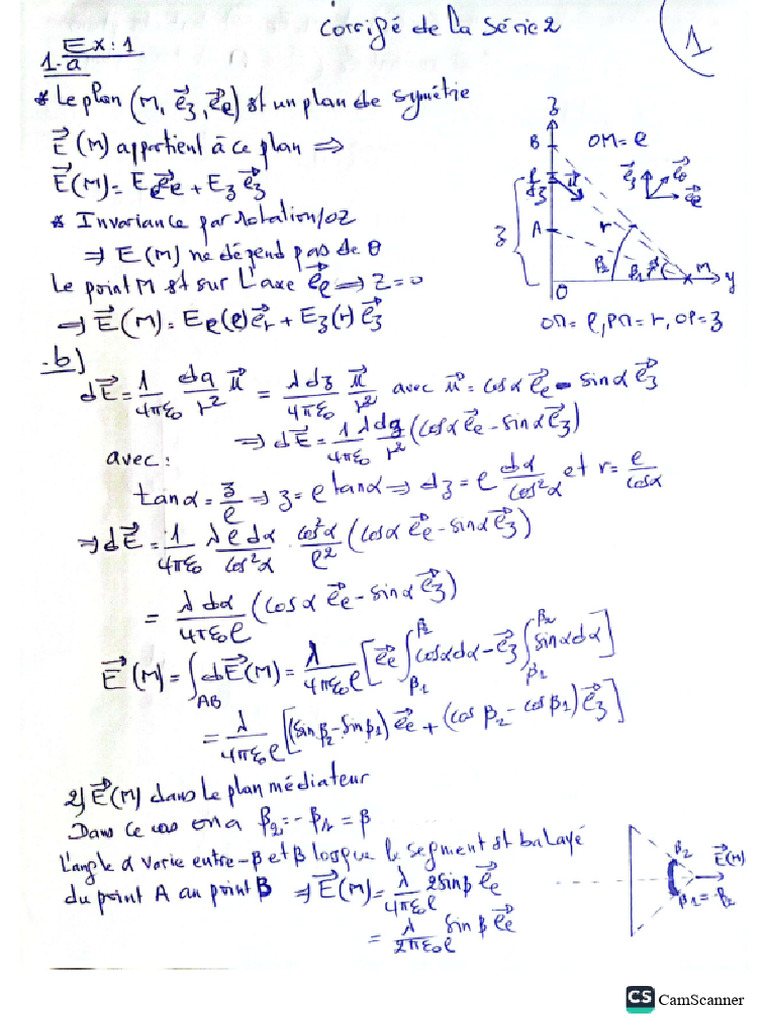 Corrigé de la Série 2
1
Ex: 1
1-a
* Le plan (M, e⃗z, e⃗ρ) est un plan de symétrie
E⃗(M) appartient à ce plan ⇒
E⃗(M) = Eρ e⃗ρ + Ez e⃗z
* Invariance par rotation/oz
⇒ E(M) ne dépend pas de θ
Le point M est sur L'axe e⃗ρ ⇒ Z=0
⇒ E⃗(M) = Eρ(ρ) e⃗r + Ez(r) e⃗z
z
B
OM = ρ
P
dz
u⃗
e⃗z
e⃗θ
e⃗ρ
z
A
r
β2
β1
α
M
y
O
OM = ρ, PM = r, OP = z
.b)
dE⃗ = 1/4πε0 dq/r² u⃗ = λdz/4πε0 u⃗/r² avec u⃗ = cosα e⃗ρ - sinα e⃗z
⇒ dE⃗ = 1/4πε0 λdz/r² (cosα e⃗ρ - sinα e⃗z)
avec:
tanα = z/ρ ⇒ z = ρ tanα ⇒ dz = ρ dα/cos²α et r = ρ/cosα
⇒ dE⃗ = 1/4πε0 λρdα/cos²α . cos²α/ρ² (cosα e⃗ρ - sinα e⃗z)
= λdα/4πε0ρ (cosα e⃗ρ - sinα e⃗z)
E⃗(M) = ∫AB dE⃗(M) = λ/4πε0ρ [e⃗ρ ∫β1^β2 cosαdα - e⃗z ∫β1^β2 sinαdα]
= λ/4πε0ρ [(sinβ2 - sinβ1) e⃗ρ + (cosβ2 - cosβ1) e⃗z]
2) E⃗(M) dans le plan médiateur
Dans ce cas on a β2 = -β1 = β
L'angle α varie entre -β et β losque le segment est balayé
du point A au point B ⇒ E⃗(M) = λ/4πε0ρ 2sinβ e⃗ρ
= λ/2πε0ρ sinβ e⃗ρ
β2
E⃗(M)
β1 = -β2
CS CamScanner